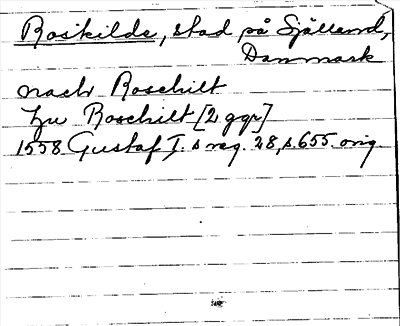 Roskilde, stad på Själland,
Danmark
nach Roschilt
zu Roschilt [2 ggr]
1558 Gustaf I. s reg. 28, s. 655. orig.